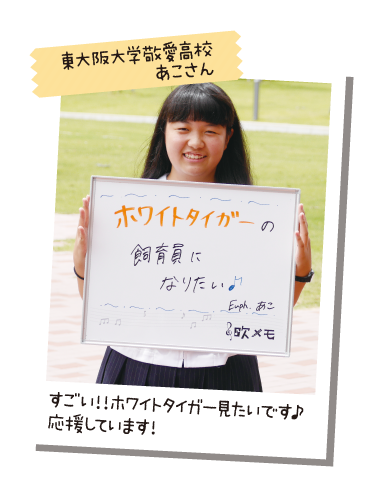 東大阪大学敬愛高校
あこさん
ホワイトタイガーの
飼育員に
なりたい♪
Euph. あこ
吹メモ
すごい!!ホワイトタイガー見たいです♪
応援しています!